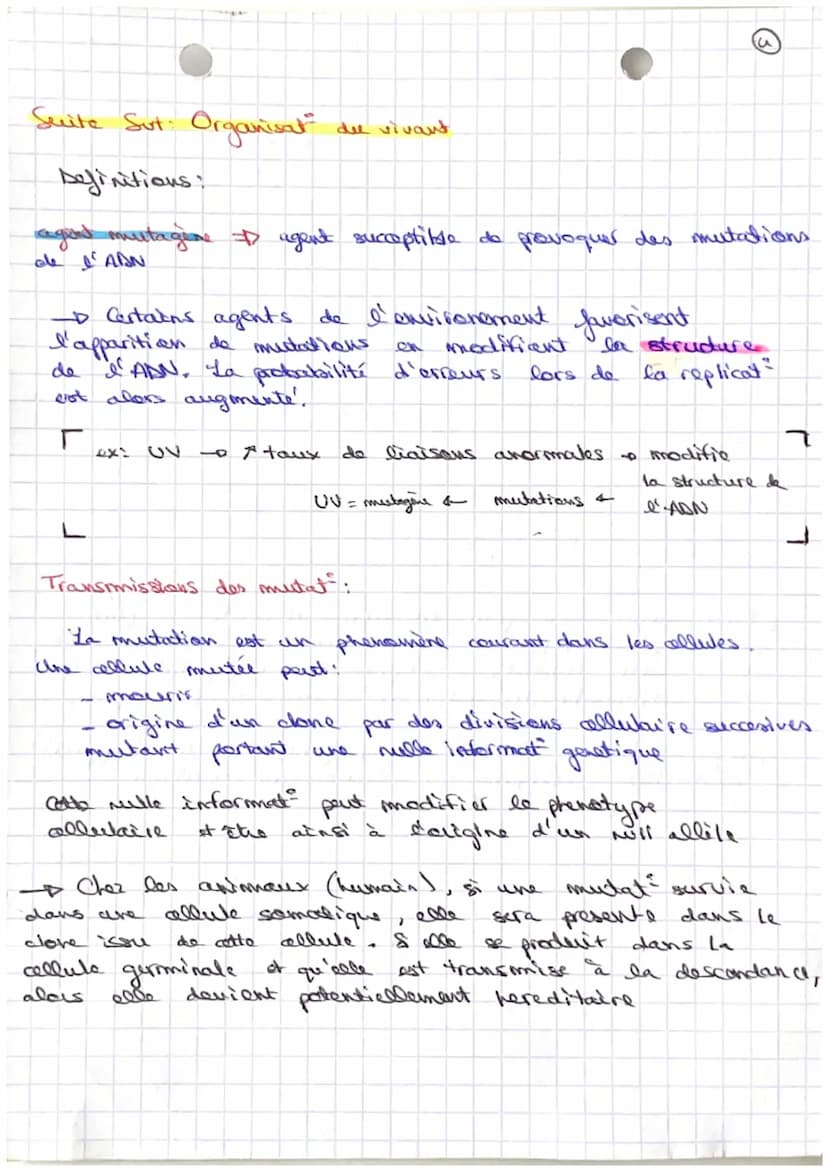 4
Suite Svt: Organisat° du vivant
Definitions:
agent mutagène => agent succeptible de provoquer des mutations
de l'ADN
→ Certains agents de l'environement favorisent
l'apparition de mutations en modifient la structure
de l'ADN. La probabilité d'erreurs lors de la replicat°
est alors augmenté.
ex: UV → ↗ taux de liaisons anormales → modifie
la structure de
UV = mutagène ← mutations ← l'ADN
Transmissions des mutat°:
La mutation est un phenomène courant dans les cellules.
Une cellule mutée peut:
- mourir
- origine d'un clone par des divisions cellulaire succesives
mutant portant une nvlle informat° genetique
Cette nvlle informat° peut modifier le phenotype
cellulaire et être ainsi à l'origine d'un nvll allèle
→ Chez les animaux (humain), si une mutat° survie
dans une cellule somatique, elle sera presente dans le
clone issu de cette cellule. Si elle se produit dans la
cellule germinale et qu'elle est transmise à la descendance,
alors elle devient potentiellement hereditaire